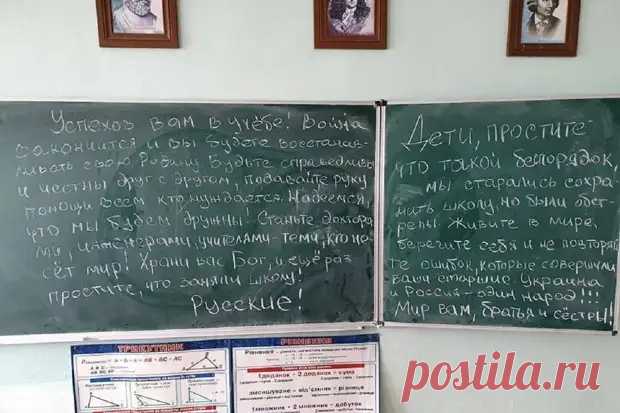 Успехов вам в учёбе! Война
закончится и вы будете восстанав-
ливать свою Родину. Будьте справедливы
и честны друг с другом, подавайте руку
помощи всем кто нуждается. Надеемся,
что мы будем дружны! Станьте доктора-
ми, инженерами, учителями - теми, кто не-
сёт мир! Храни вас Бог, и ещё раз
простите что заняли школу!
Русские!
Дети, простите
что такой беспорядок,
мы старались сохра-
нить школу, но были обст-
релы. Живите в мире,
берегите себя и не повторяй-
те ошибок, которые совершили
ваши старшие. Украина
и Россия - один народ!!!
Мир вам, братья и сёстры!!
ТРИКУТНИК
РІВНЯННЯ
Рівняння
1доданок + 2 доданок = сума
зменшуване - від'ємник = різниця
1множник · 2 множник = добуток
postila.ru